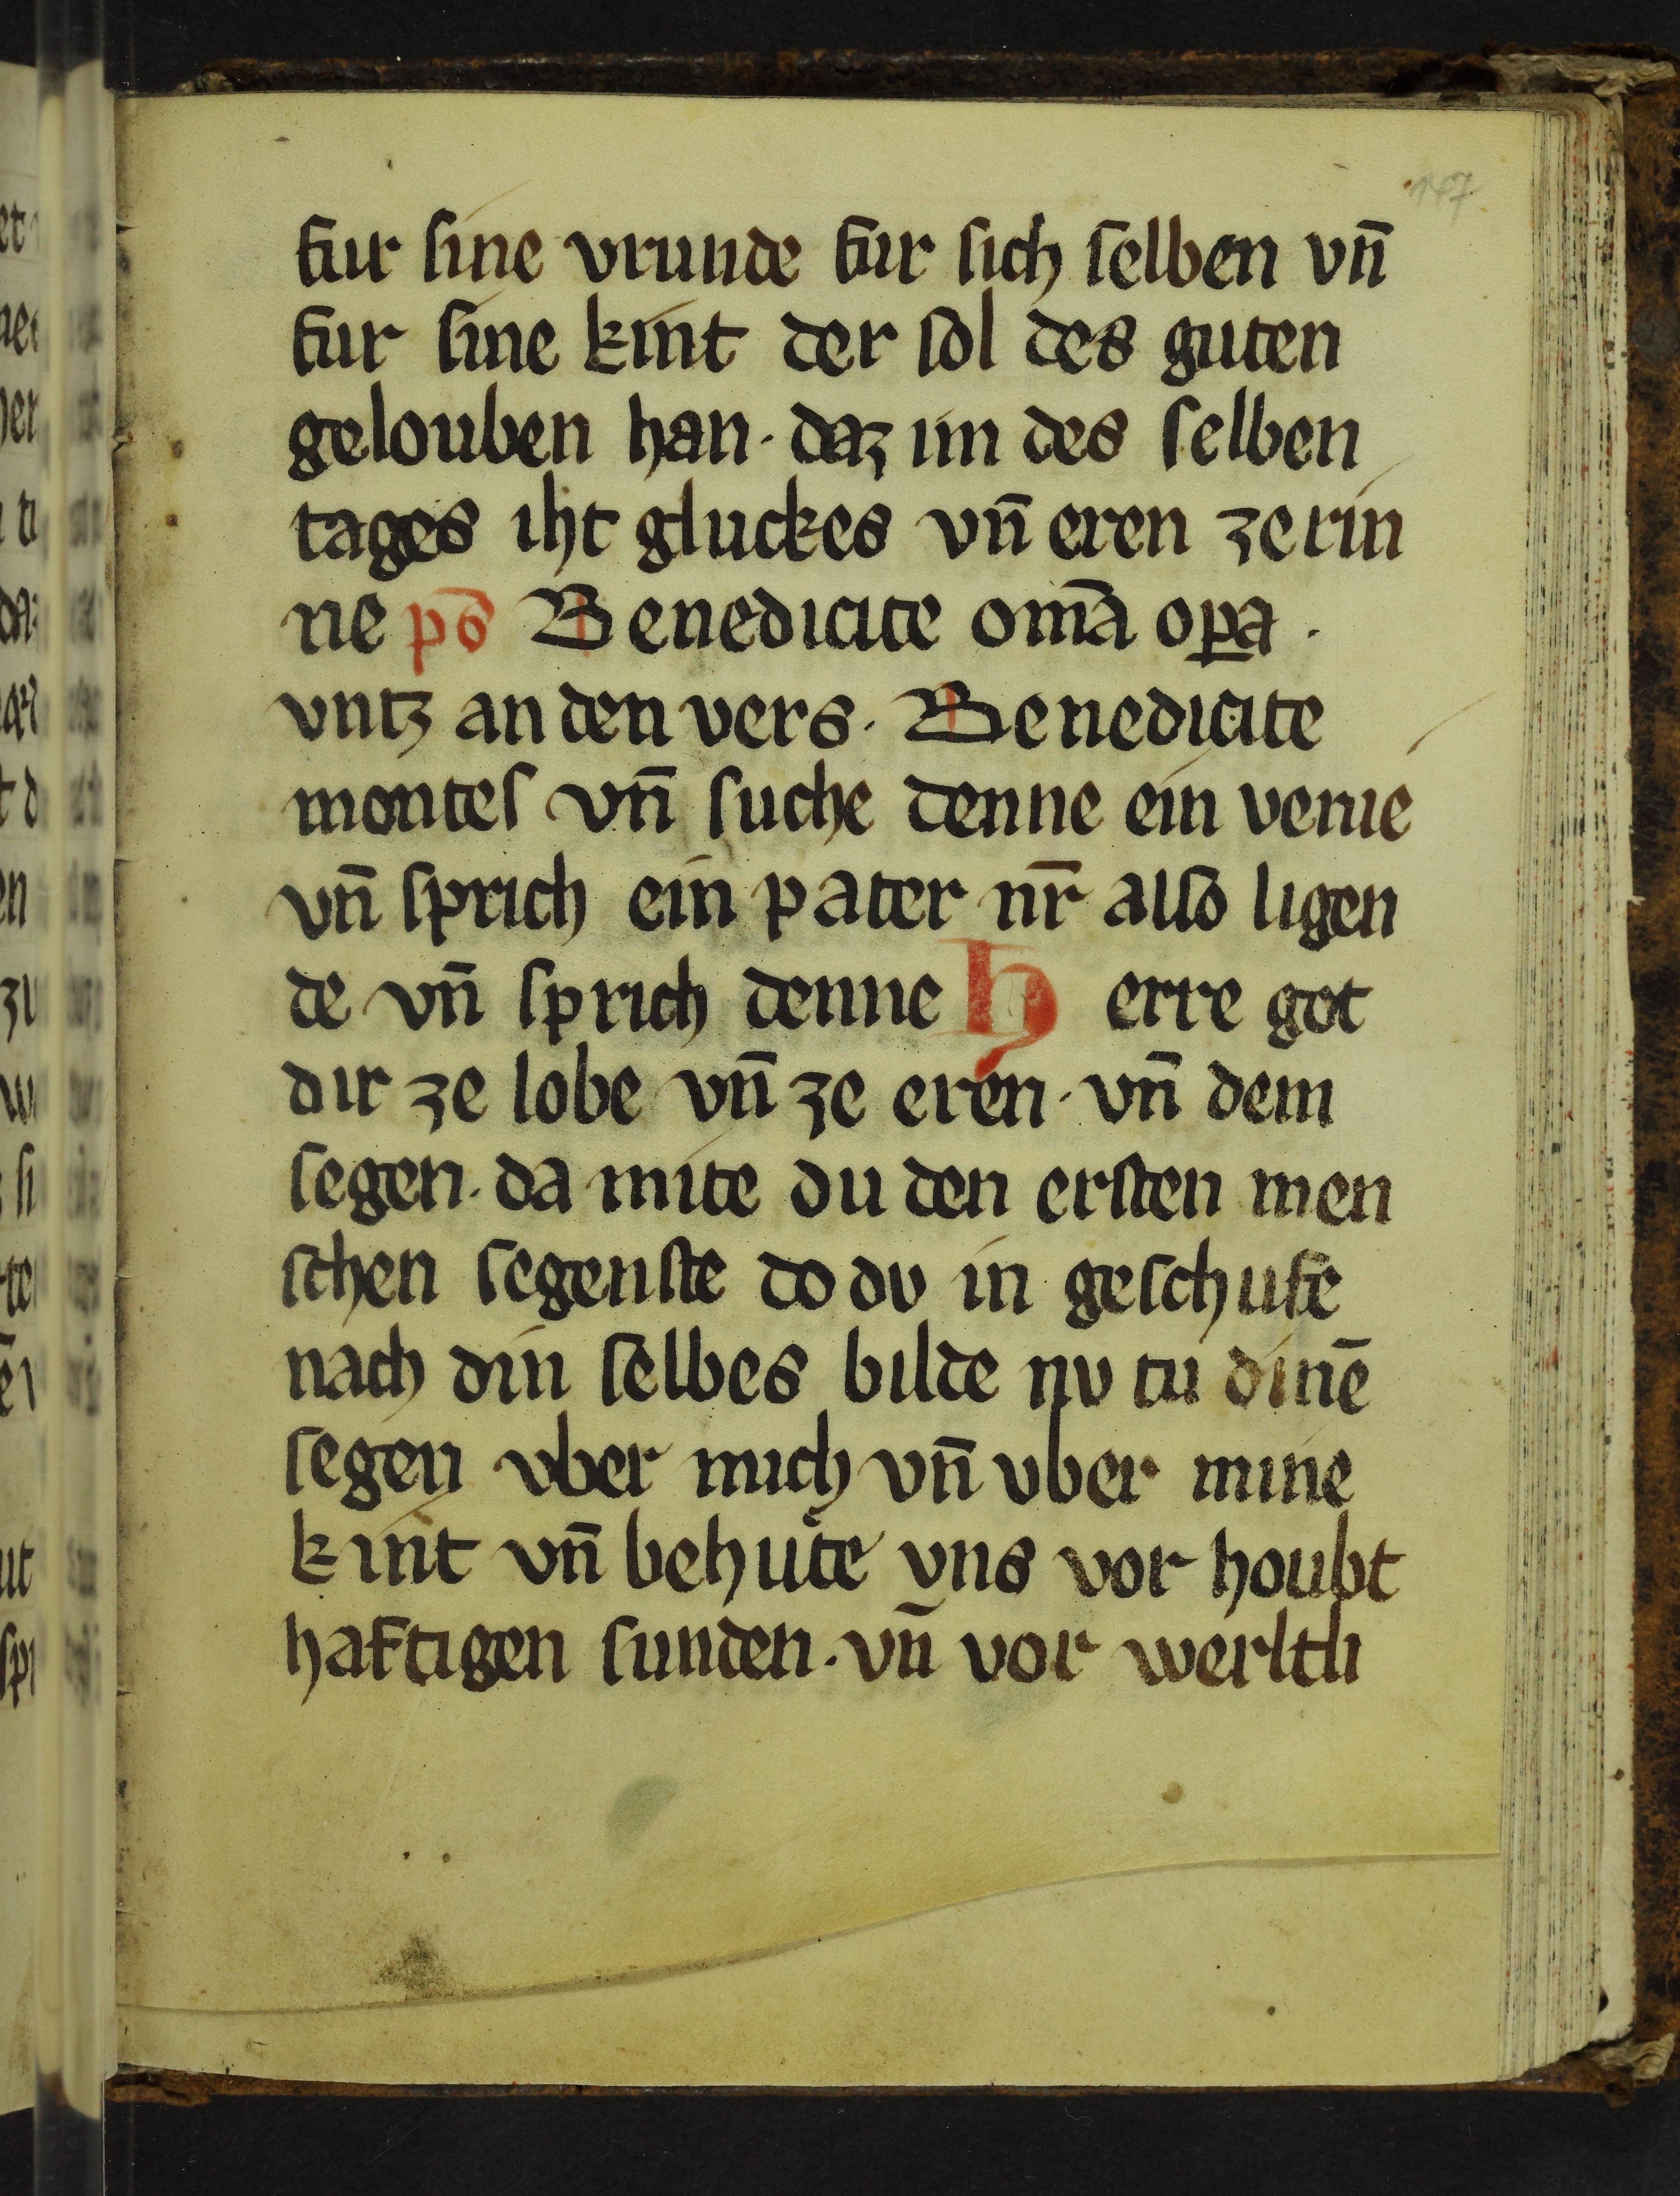 147
fur sine vrunde fur sich selben vn̄
fur sine kint der sol des guten
gelouben han · daz im des selben
tages iht gluckes vn̄ eren zerin
ne ps̄ Benedicite om̄a oꝑa ·
vntz an den vers · Benedicite
montes vn̄ suche denne ein venie
vn̄ sprich ein pater nr̄ also ligen
de vn̄ sprich denne Herre got
dir ze lobe vn̄ ze eren · vn̄ dem
segen · da mite du den ersten men
schen segenste do dv in geschufe
nach din selbes bilde nv tu dinē
segen vber mich vn̄ vber mine
kint vn̄ behute vns vor houbt
haftigen sunden · vn̄ vor werltli